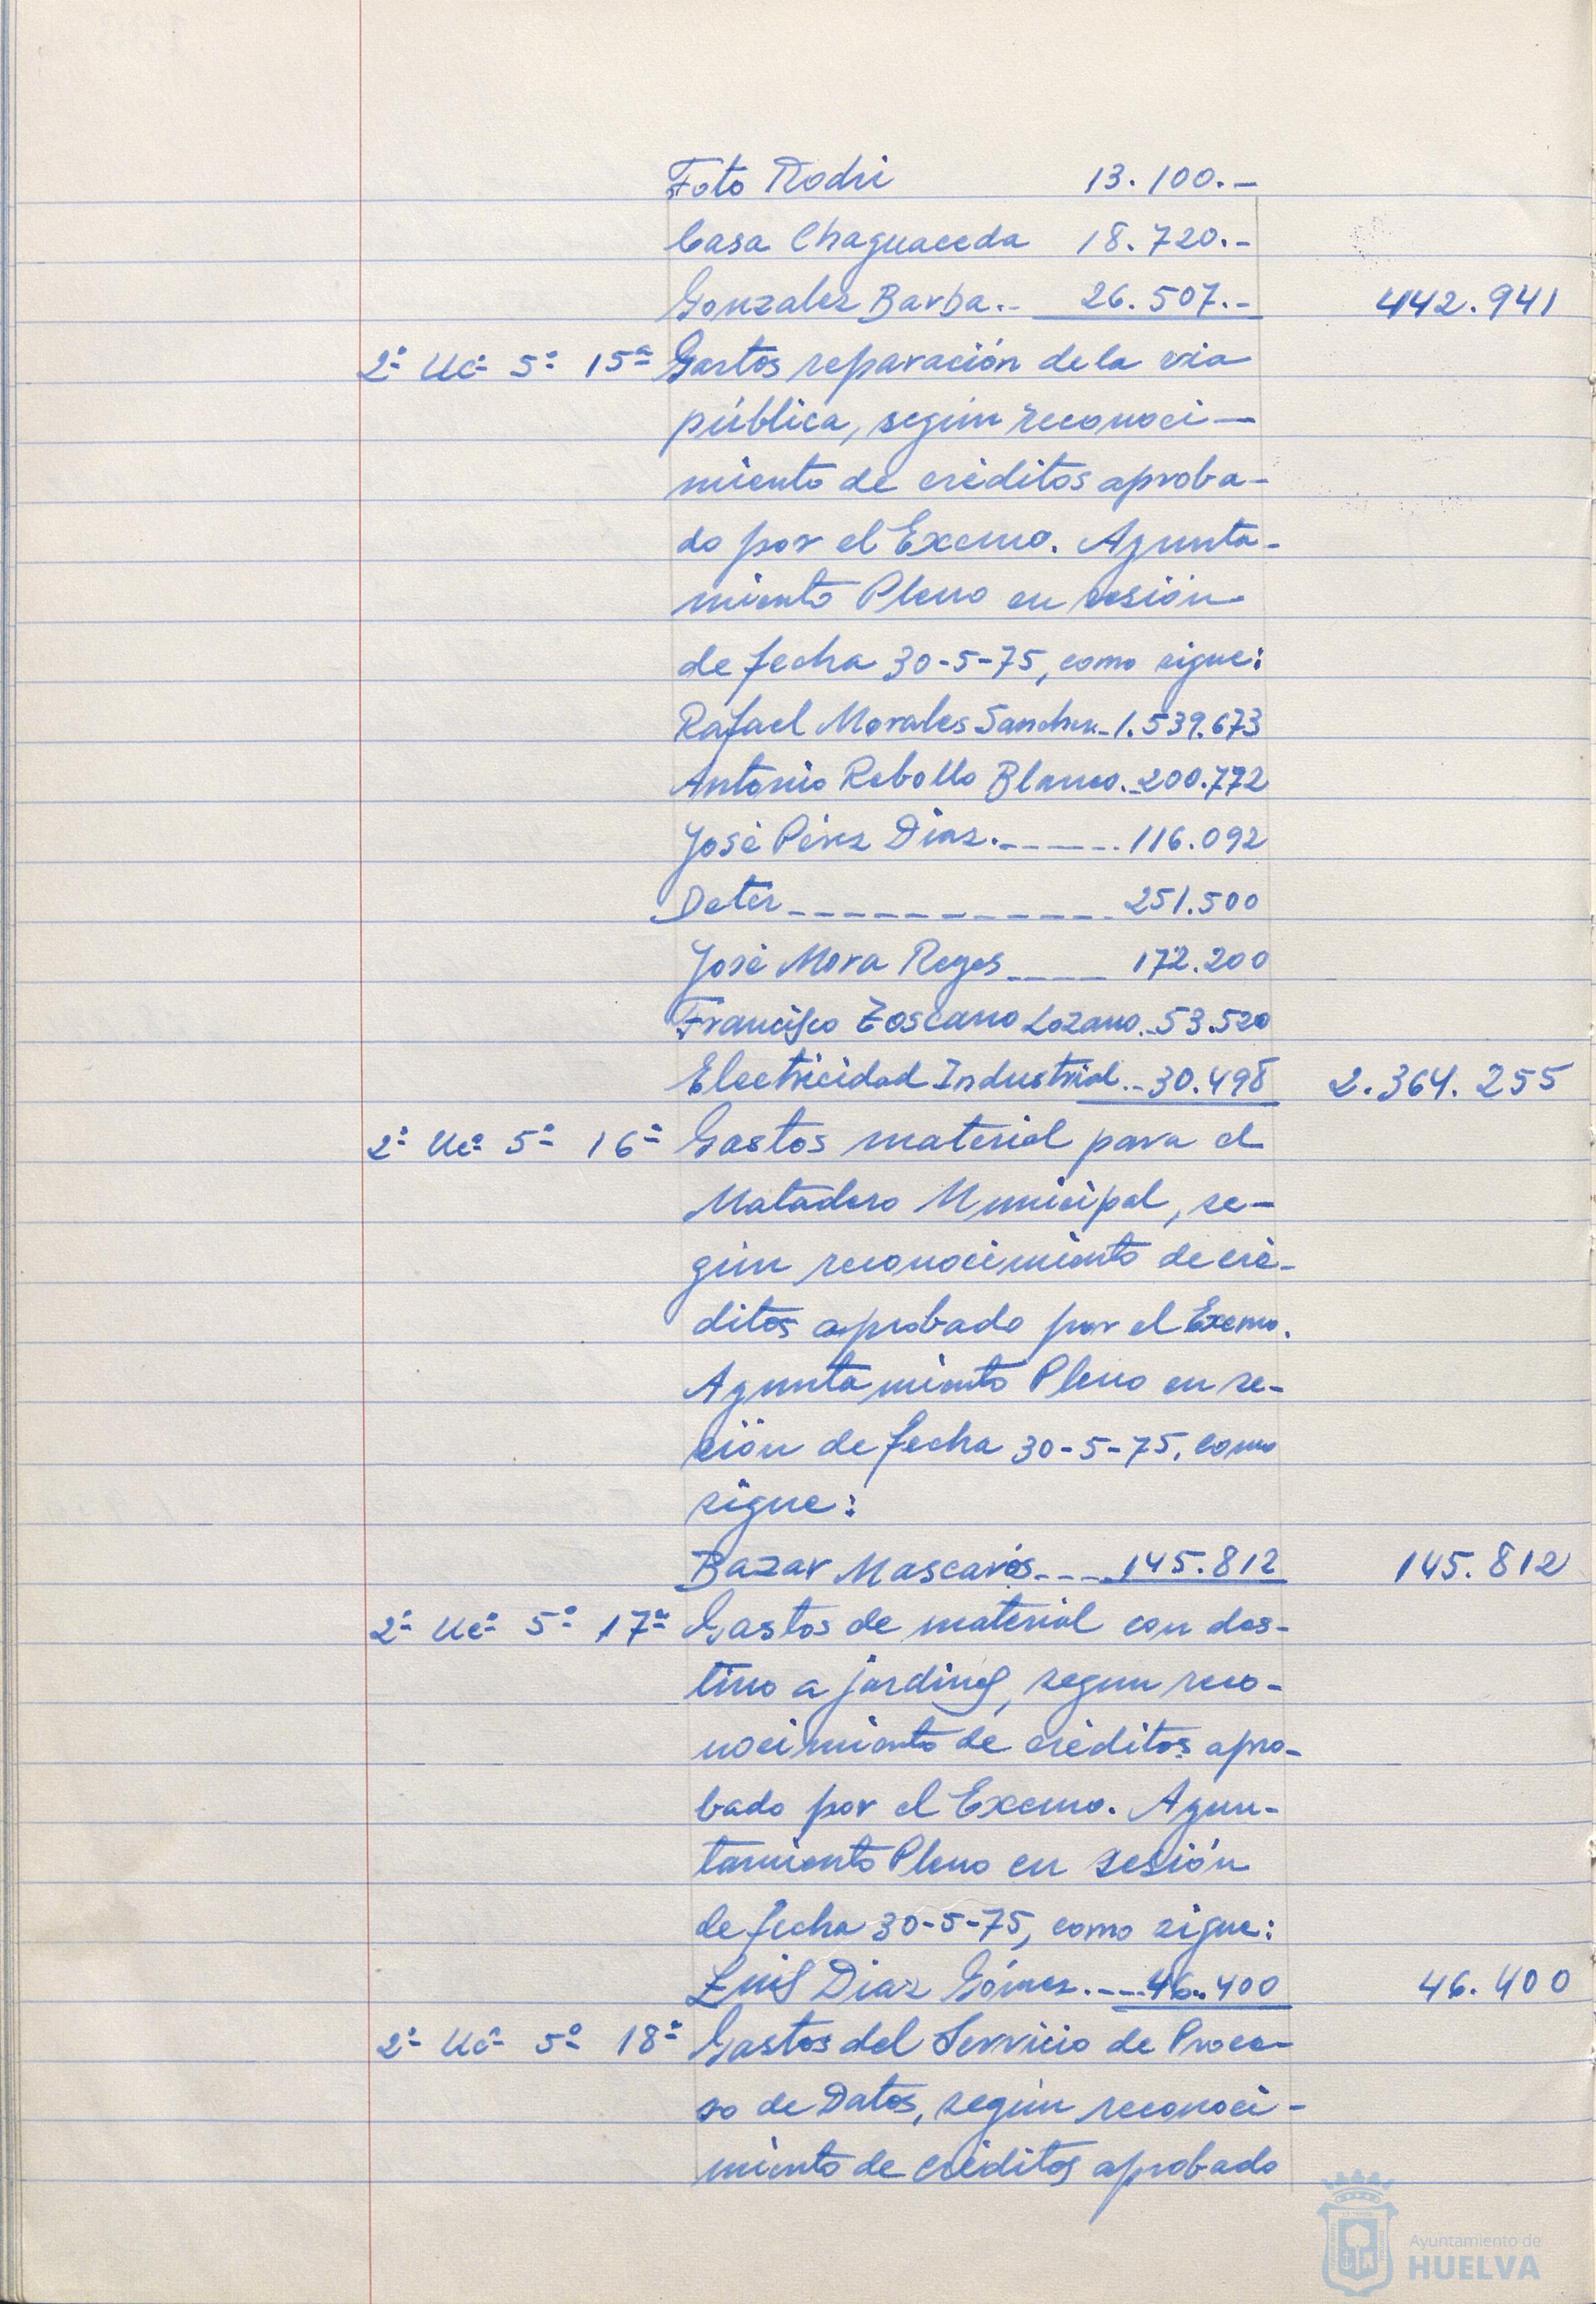 Foto Rodri 13.100.-
Casa Chaguaceda 18.720.-
Gonzalez Barba.- 26.507.- 442.941
2º Uc- 5º 15ª Gastos reparación de la via
pública, según reconoci-
miento de créditos aproba-
do por el Excmo. Ayunta-
miento Pleno en sesión
de fecha 30-5-75, como sigue:
Rafael Morales Sanchez-1.539.673
Antonio Rebollo Blanco.-200.772
José Pérez Diaz.-----116.092
Deter-----------251.500
José Mora Reyes---- 172.200
Francisco Toscano Lozano.-53.520
Electricidad Industrial.-30.498 2.364.255
2º Uc- 5º 16ª Gastos material para el
Matadero Municipal, se-
gún reconocimiento de cré-
ditos aprobado por el Excmo.
Ayuntamiento Pleno en se-
sión de fecha 30-5-75, como
sigue:
Bazar Mascarós----145.812 145.812
2º Uc- 5º 17ª Gastos de material con des-
tino a jardines, segun reco-
nocimiento de créditos apro-
bado por el Excmo. Ayun-
tamiento Pleno en sesión
de fecha 30-5-75, como sigue:
Luis Diaz Gómez.---46.400 46.400
2º Uc- 5º 18ª Gastos del Servicio de Proce-
so de Datos, según reconoci-
miento de créditos aprobado
Ayuntamiento de
HUELVA